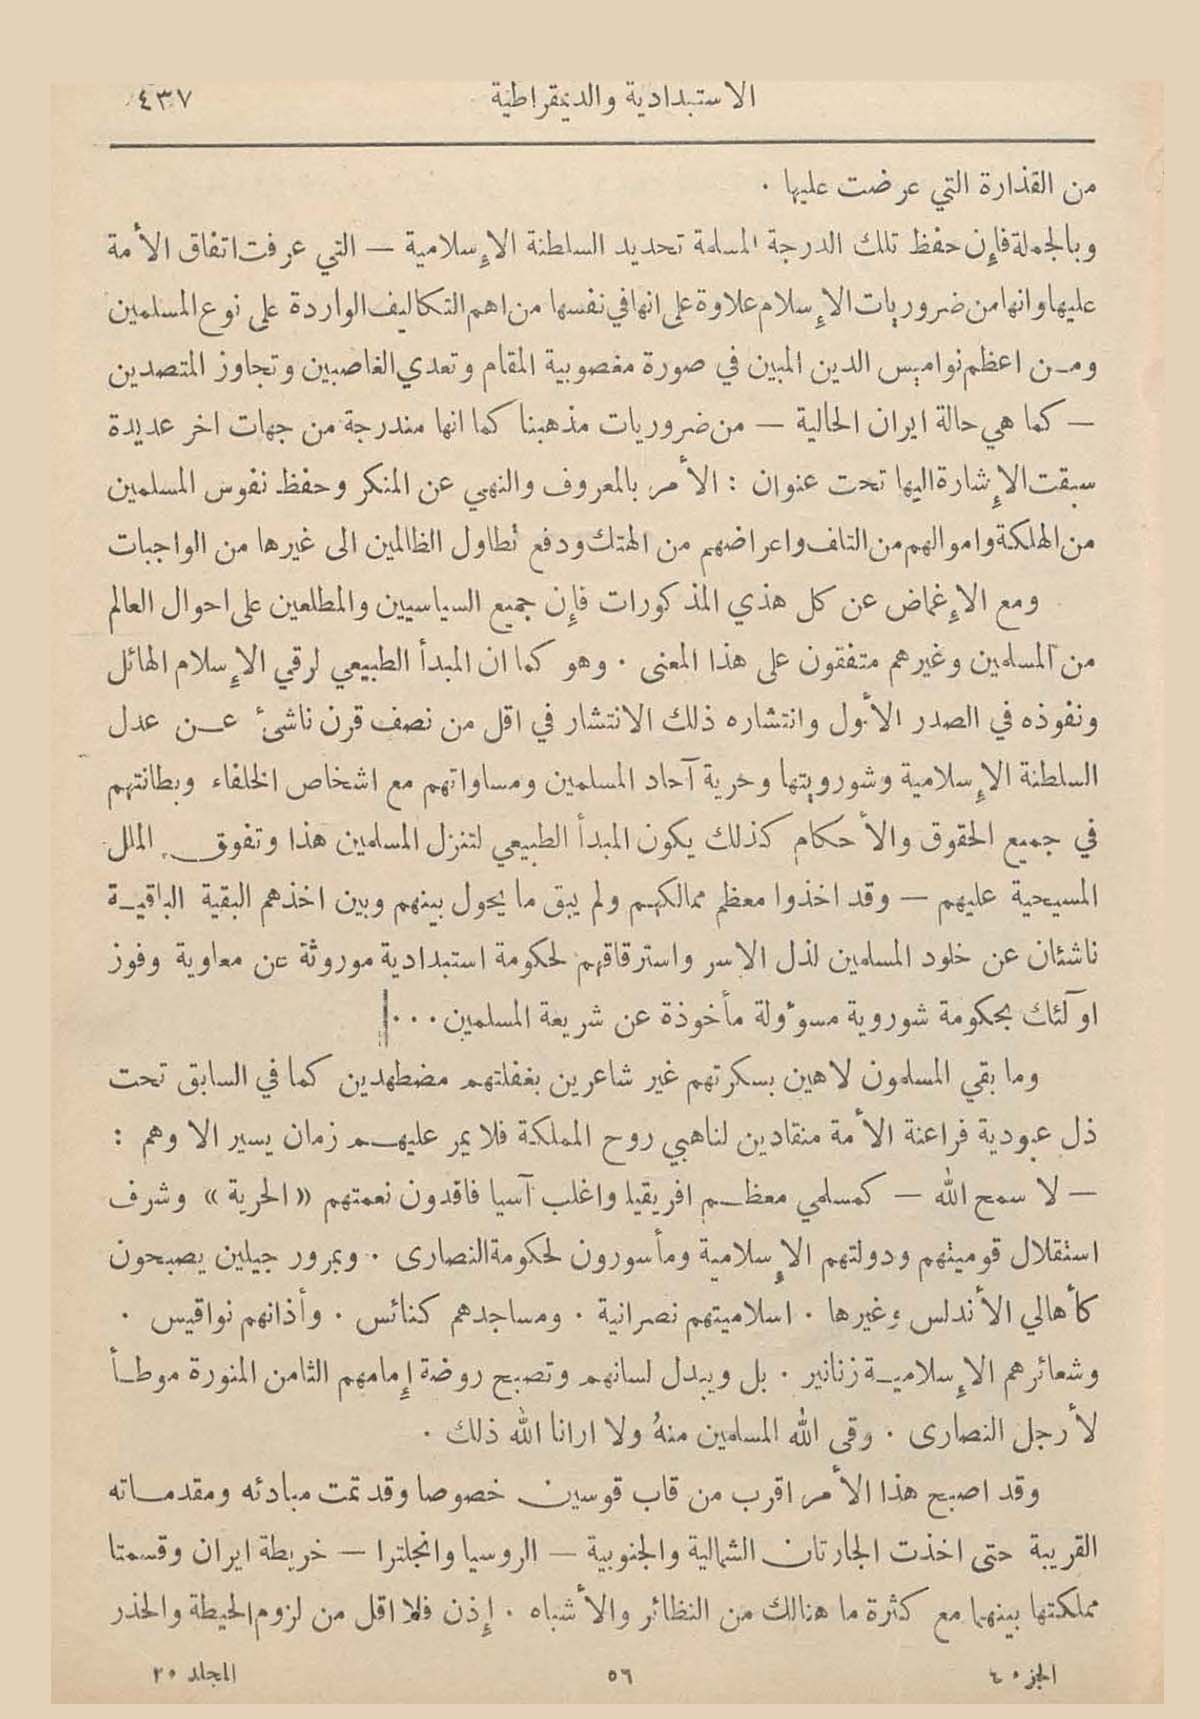 الاستبدادية والديمقراطية ٤٣٧
من القذارة التي عرضت عليها .
وبالجملة فإن حفظ تلك الدرجة المسلمة تحديد السلطنة الإسلامية — التي عرفت اتفاق الأمة
عليها وانها من ضروريات الإسلام علاوة على انها في نفسها من اهم التكاليف الواردة على نوع المسلمين
ومـن اعظم نواميس الدين المبين في صورة مغصوبية المقام وتعدي الغاصبين وتجاوز المتصدين
— كما هي حالة ايران الحالية — من ضروريات مذهبنا كما انها مندرجة من جهات اخر عديدة
سبقت الإشارة اليها تحت عنوان : الأمر بالمعروف والنهي عن المنكر وحفظ نفوس المسلمين
من الهلكة واموالهم من التلف واعراضهم من الهتك ودفع تطاول الظالمين الى غيرها من الواجبات
ومع الإغماض عن كل هذي المذكورات فإن جميع السياسيين والمطلعين على احوال العالم
من المسلمين وغيرهم متفقون على هذا المعنى . وهو كما ان المبدأ الطبيعي لرقي الإسلام الهائل
ونفوذه في الصدر الأول وانتشاره ذلك الانتشار في اقل من نصف قرن ناشئ عـن عدل
السلطنة الإسلامية وشورويتها وحرية آحاد المسلمين ومساواتهم مع اشخاص الخلفاء وبطانتهم
في جميع الحقوق والأحكام كذلك يكون المبدأ الطبيعي لتنزل المسلمين هذا وتفوق الملل
المسيحية عليهم — وقد اخذوا معظم ممالكهم ولم يبق ما يحول بينهم وبين اخذهم البقية الباقيـة
ناشئان عن خلود المسلمين لذل الاسر واسترقاقهم لحكومة استبدادية موروثة عن معاوية وفوز
اولئك بحكومة شوروية مسؤولة مأخوذة عن شريعة المسلمين...
وما بقي المسلمون لاهين بسكرتهم غير شاعرين بغفلتهم مضطهدين كما في السابق تحت
ذل عبودية فراعنة الأمة منقادين لناهبي روح المملكة فلا يمر عليهـم زمان يسير الا وهم :
— لا سمح الله — كمسلمي معظـم افريقيا واغلب آسيا فاقدون نعمتهم «الحرية» وشرف
استقلال قوميتهم ودولتهم الإسلامية ومأسورون لحكومة النصارى . وبمرور جيلين يصبحون
كأهالي الأندلس وغيرها . اسلاميتهم نصرانية . ومساجدهم كنائس . وأذانهم نواقيس .
وشعائرهم الإسلاميـة زنانير . بل ويبدل لسانهم وتصبح روضة إمامهم الثامن المنورة موطـأ
لأرجل النصارى . وقى الله المسلمين منهُ ولا ارانا الله ذلك .
وقد اصبح هذا الأمر اقرب من قاب قوسين خصوصا وقد تمت مبادئه ومقدمـاته
القريبة حتى اخذت الجارتان الشمالية والجنوبية — الروسيا وانجلترا — خريطة ايران وقسمتا
مملكتها بينهما مع كثرة ما هنالك من النظائر والأشباه . إذن فلا اقل من لزوم الحيطة والحذر
الجزء ٤ ٥٦ المجلد ٢٠